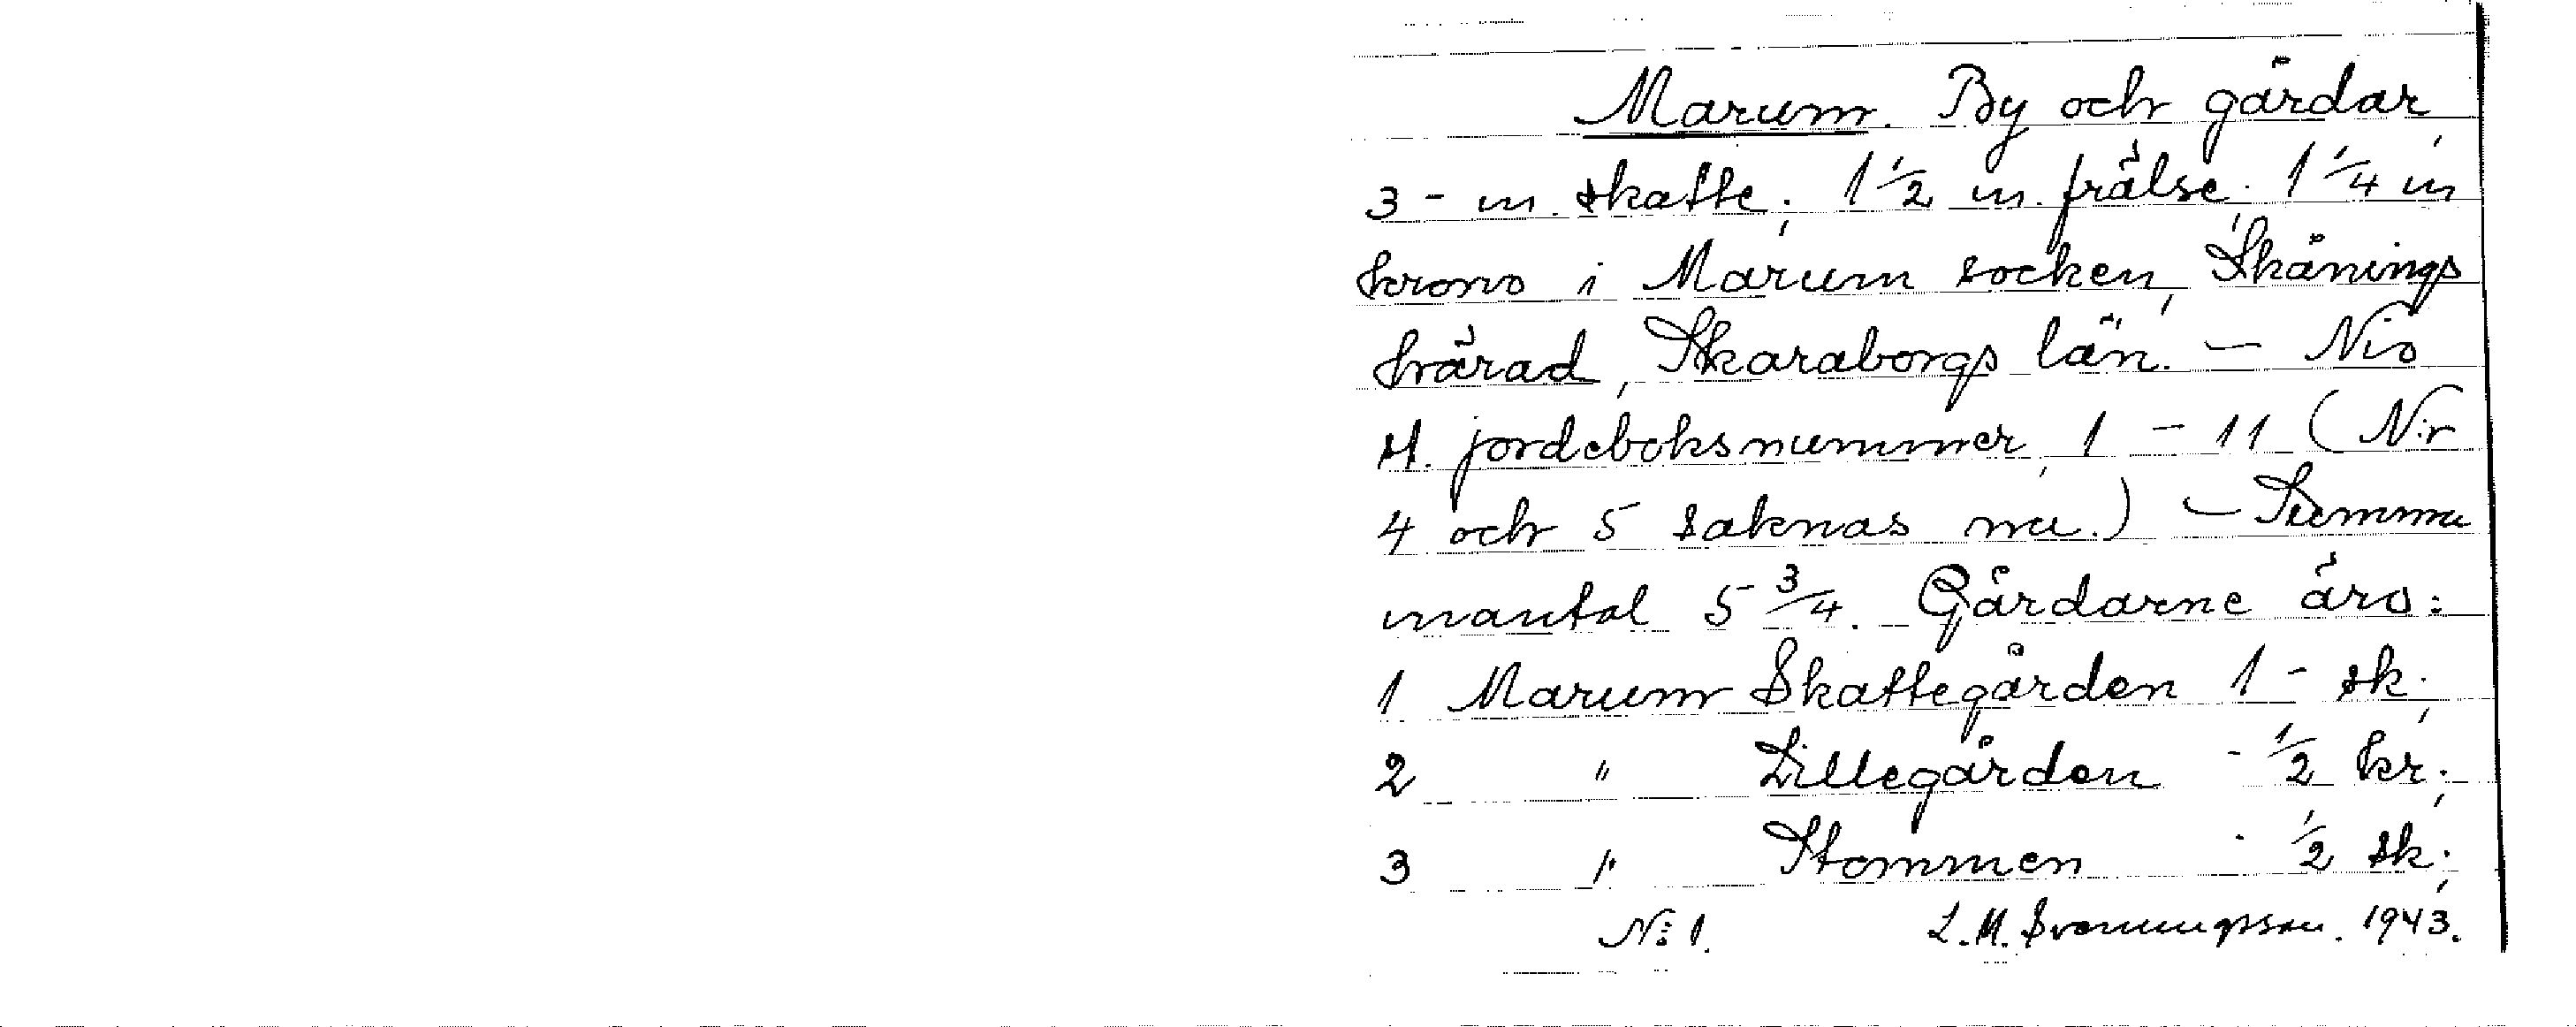 Marum. By och gårdar,
3 - m. skatte; 1 1/2 m. frälse; 1 1/4 m
krono i Marum socken, Skånings
härad, Skaraborgs län. - Nio
H. jordeboksnummer, 1 - 11 (N:r
4 och 5 saknas nu.) - Summa
mantal 5 3/4. Gårdarne äro:
1 Marum Skattegården 1 - sk;
2 " Lillegården - 1/2 kr;
3 " Stommen - 1/2 sk;
N:o 1. L.M. Svenungsson. 1943.